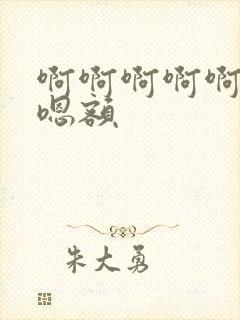 啊啊啊啊啊
嗯额
朱大勇